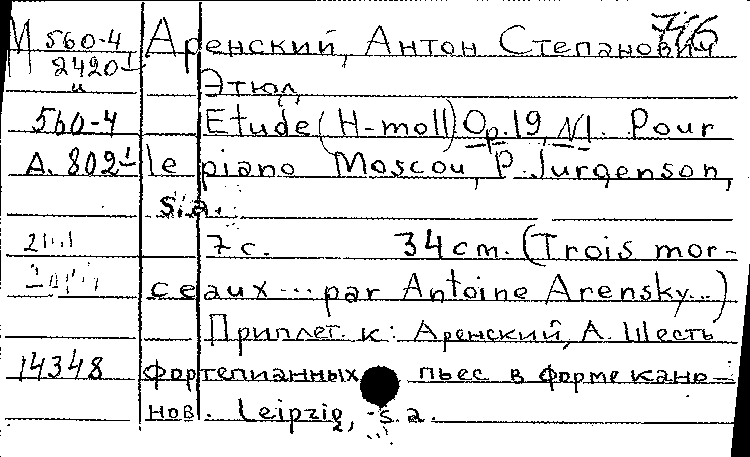 М 560-4 Аренский, Антон Степанович 776
2420-1
и Этюд
560-4 Etude (H-moll) Op. 19, N1. Pour
А. 802-1 le piano Moscou, P. Jurgenson,
s. a.
7 с. 34 см. (Trois mor-
ceaux ... par Antoine Arensky...)
Приплет. к: Аренский, А. Шесть
14348 фортепианных пьес в форме кано-
нов. Leipzig, s. a.